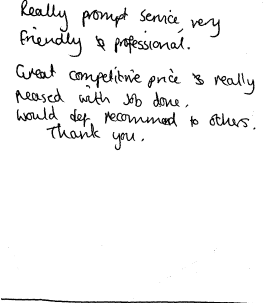 Really prompt service, very
friendly & professional.
Great competitive price & really
pleased with job done.
Would def recommend to others.
Thank you.